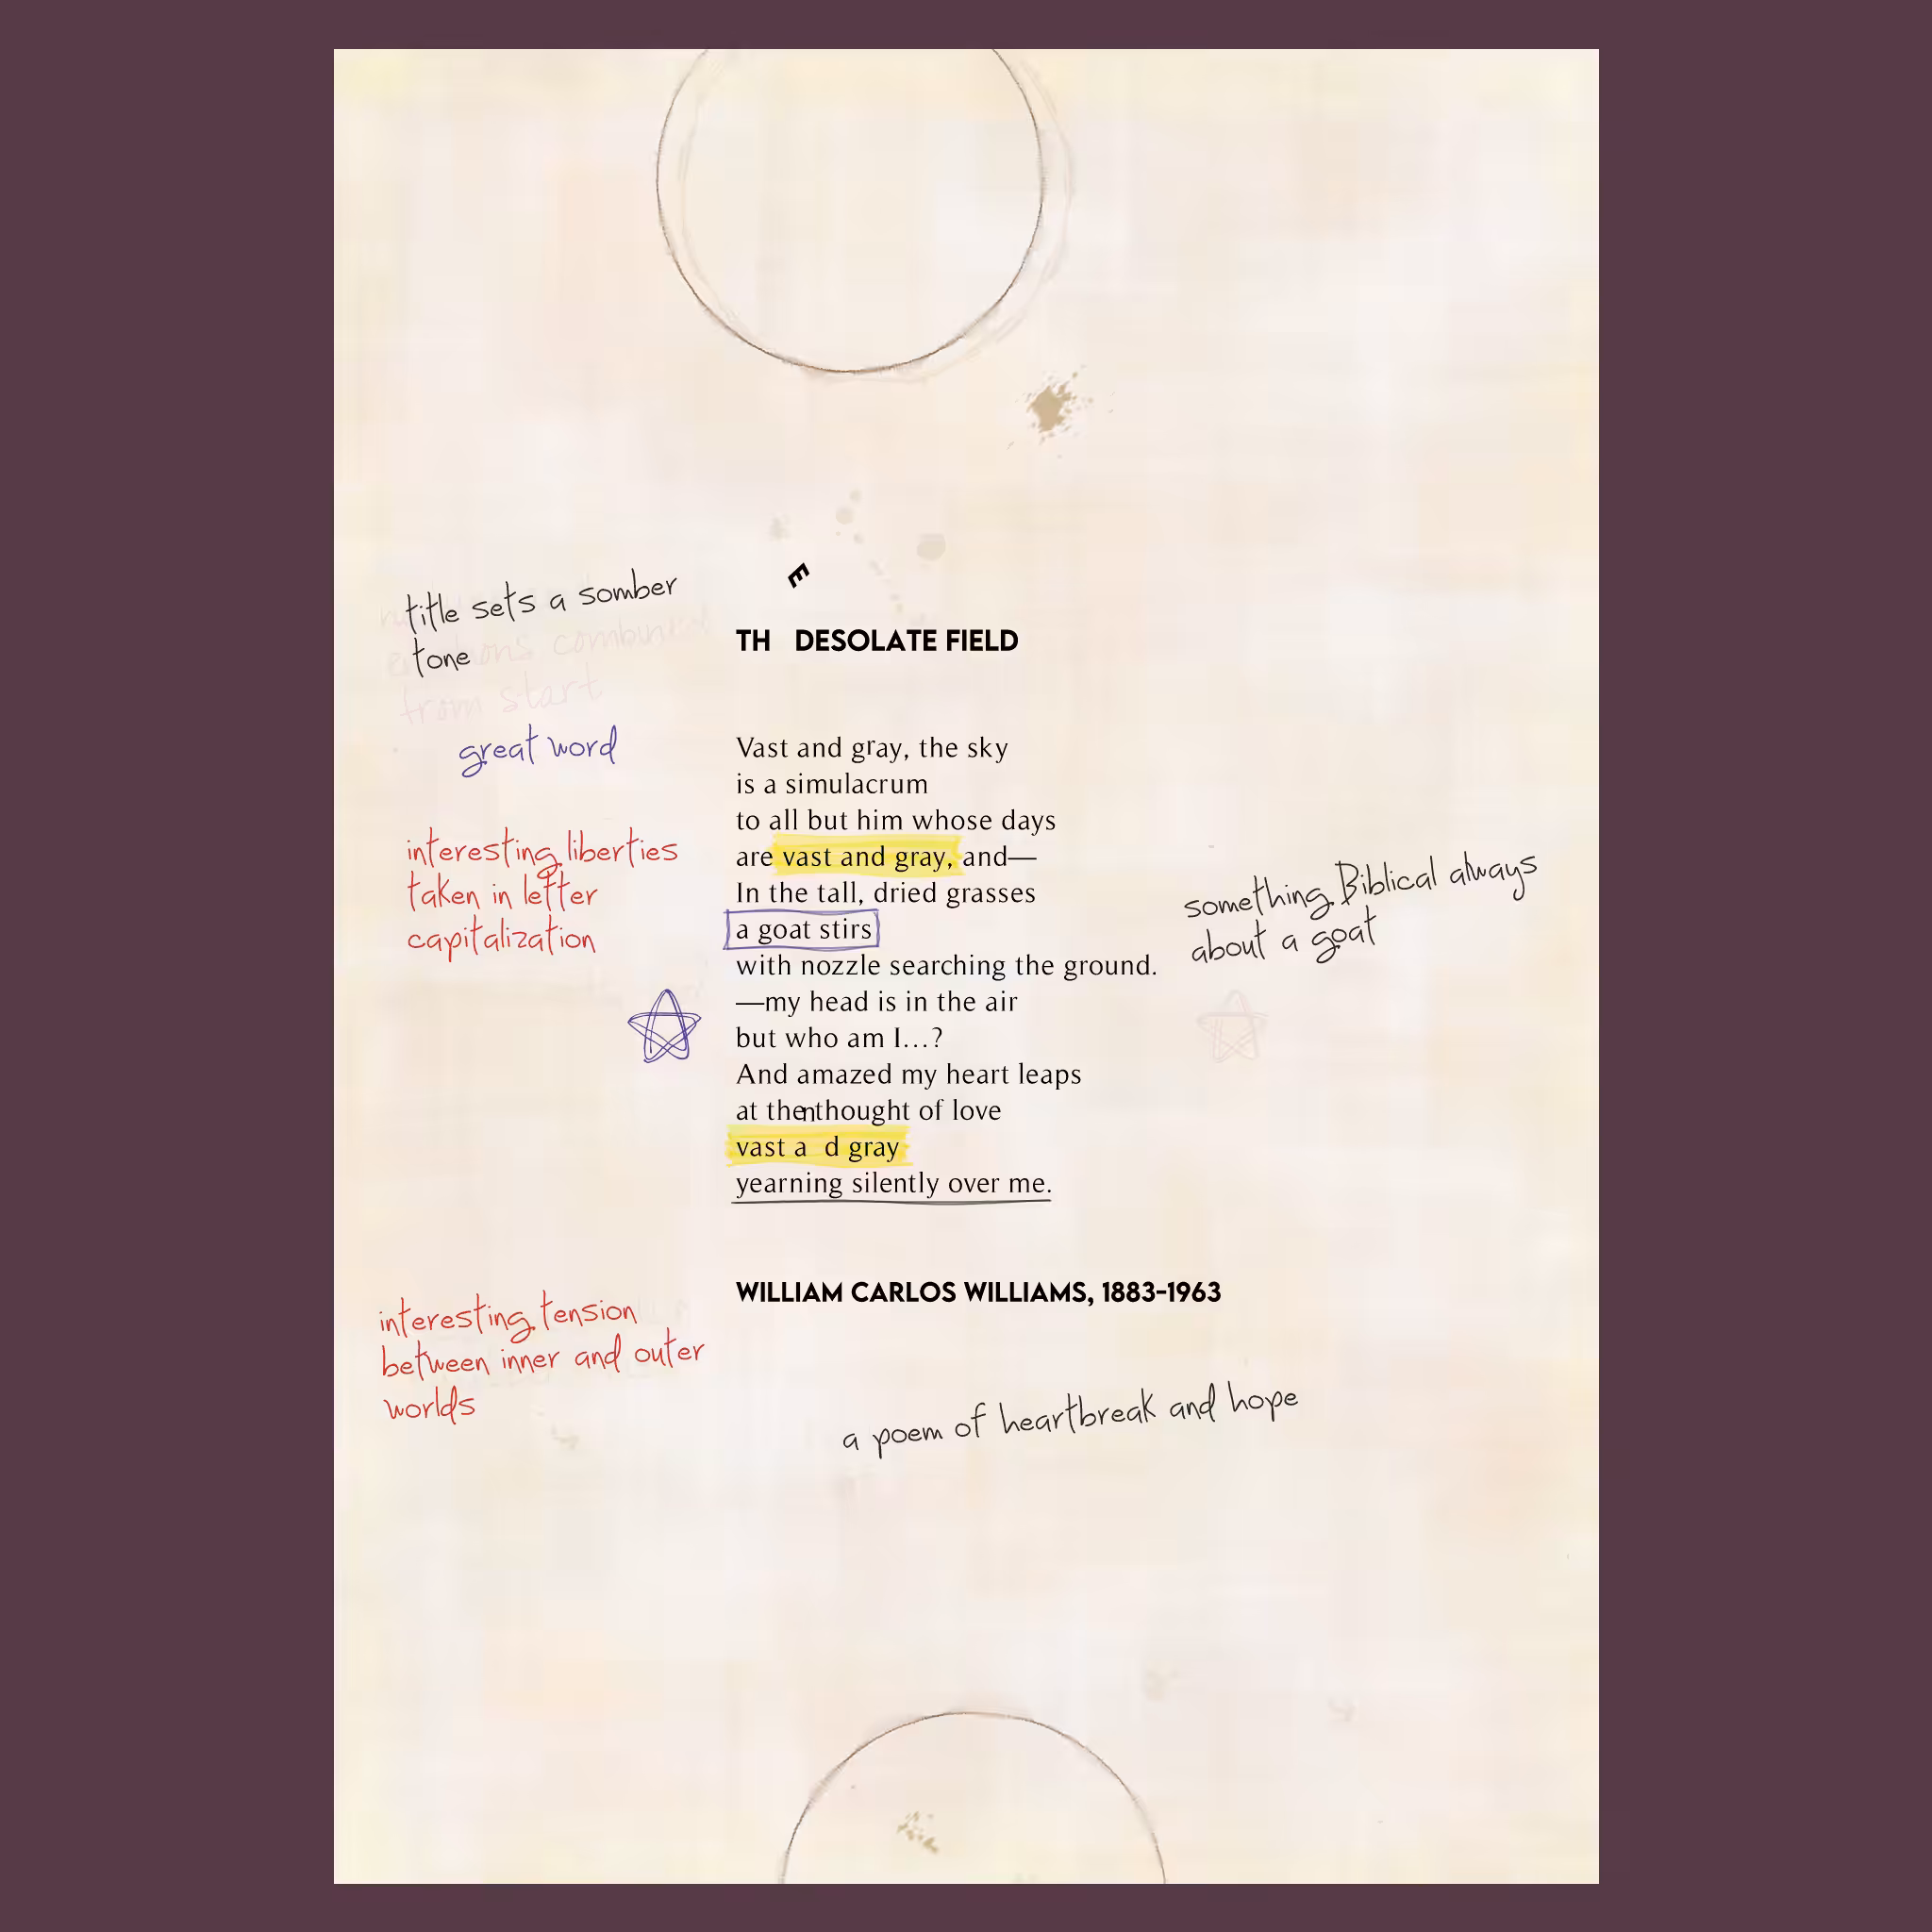 E
TH DESOLATE FIELD
title sets a somber
tone
from start.
great word
Vast and gray, the sky
is a simulacrum
to all but him whose days
are vast and gray, and—
In the tall, dried grasses
a goat stirs
with nozzle searching the ground.
—my head is in the air
but who am I...?
And amazed my heart leaps
at the thought of love
n
vast a d gray
yearning silently over me.
interesting liberties
taken in letter
capitalization
something Biblical always
about a goat
WILLIAM CARLOS WILLIAMS, 1883-1963
interesting tension
between inner and outer
worlds
a poem of heartbreak and hope